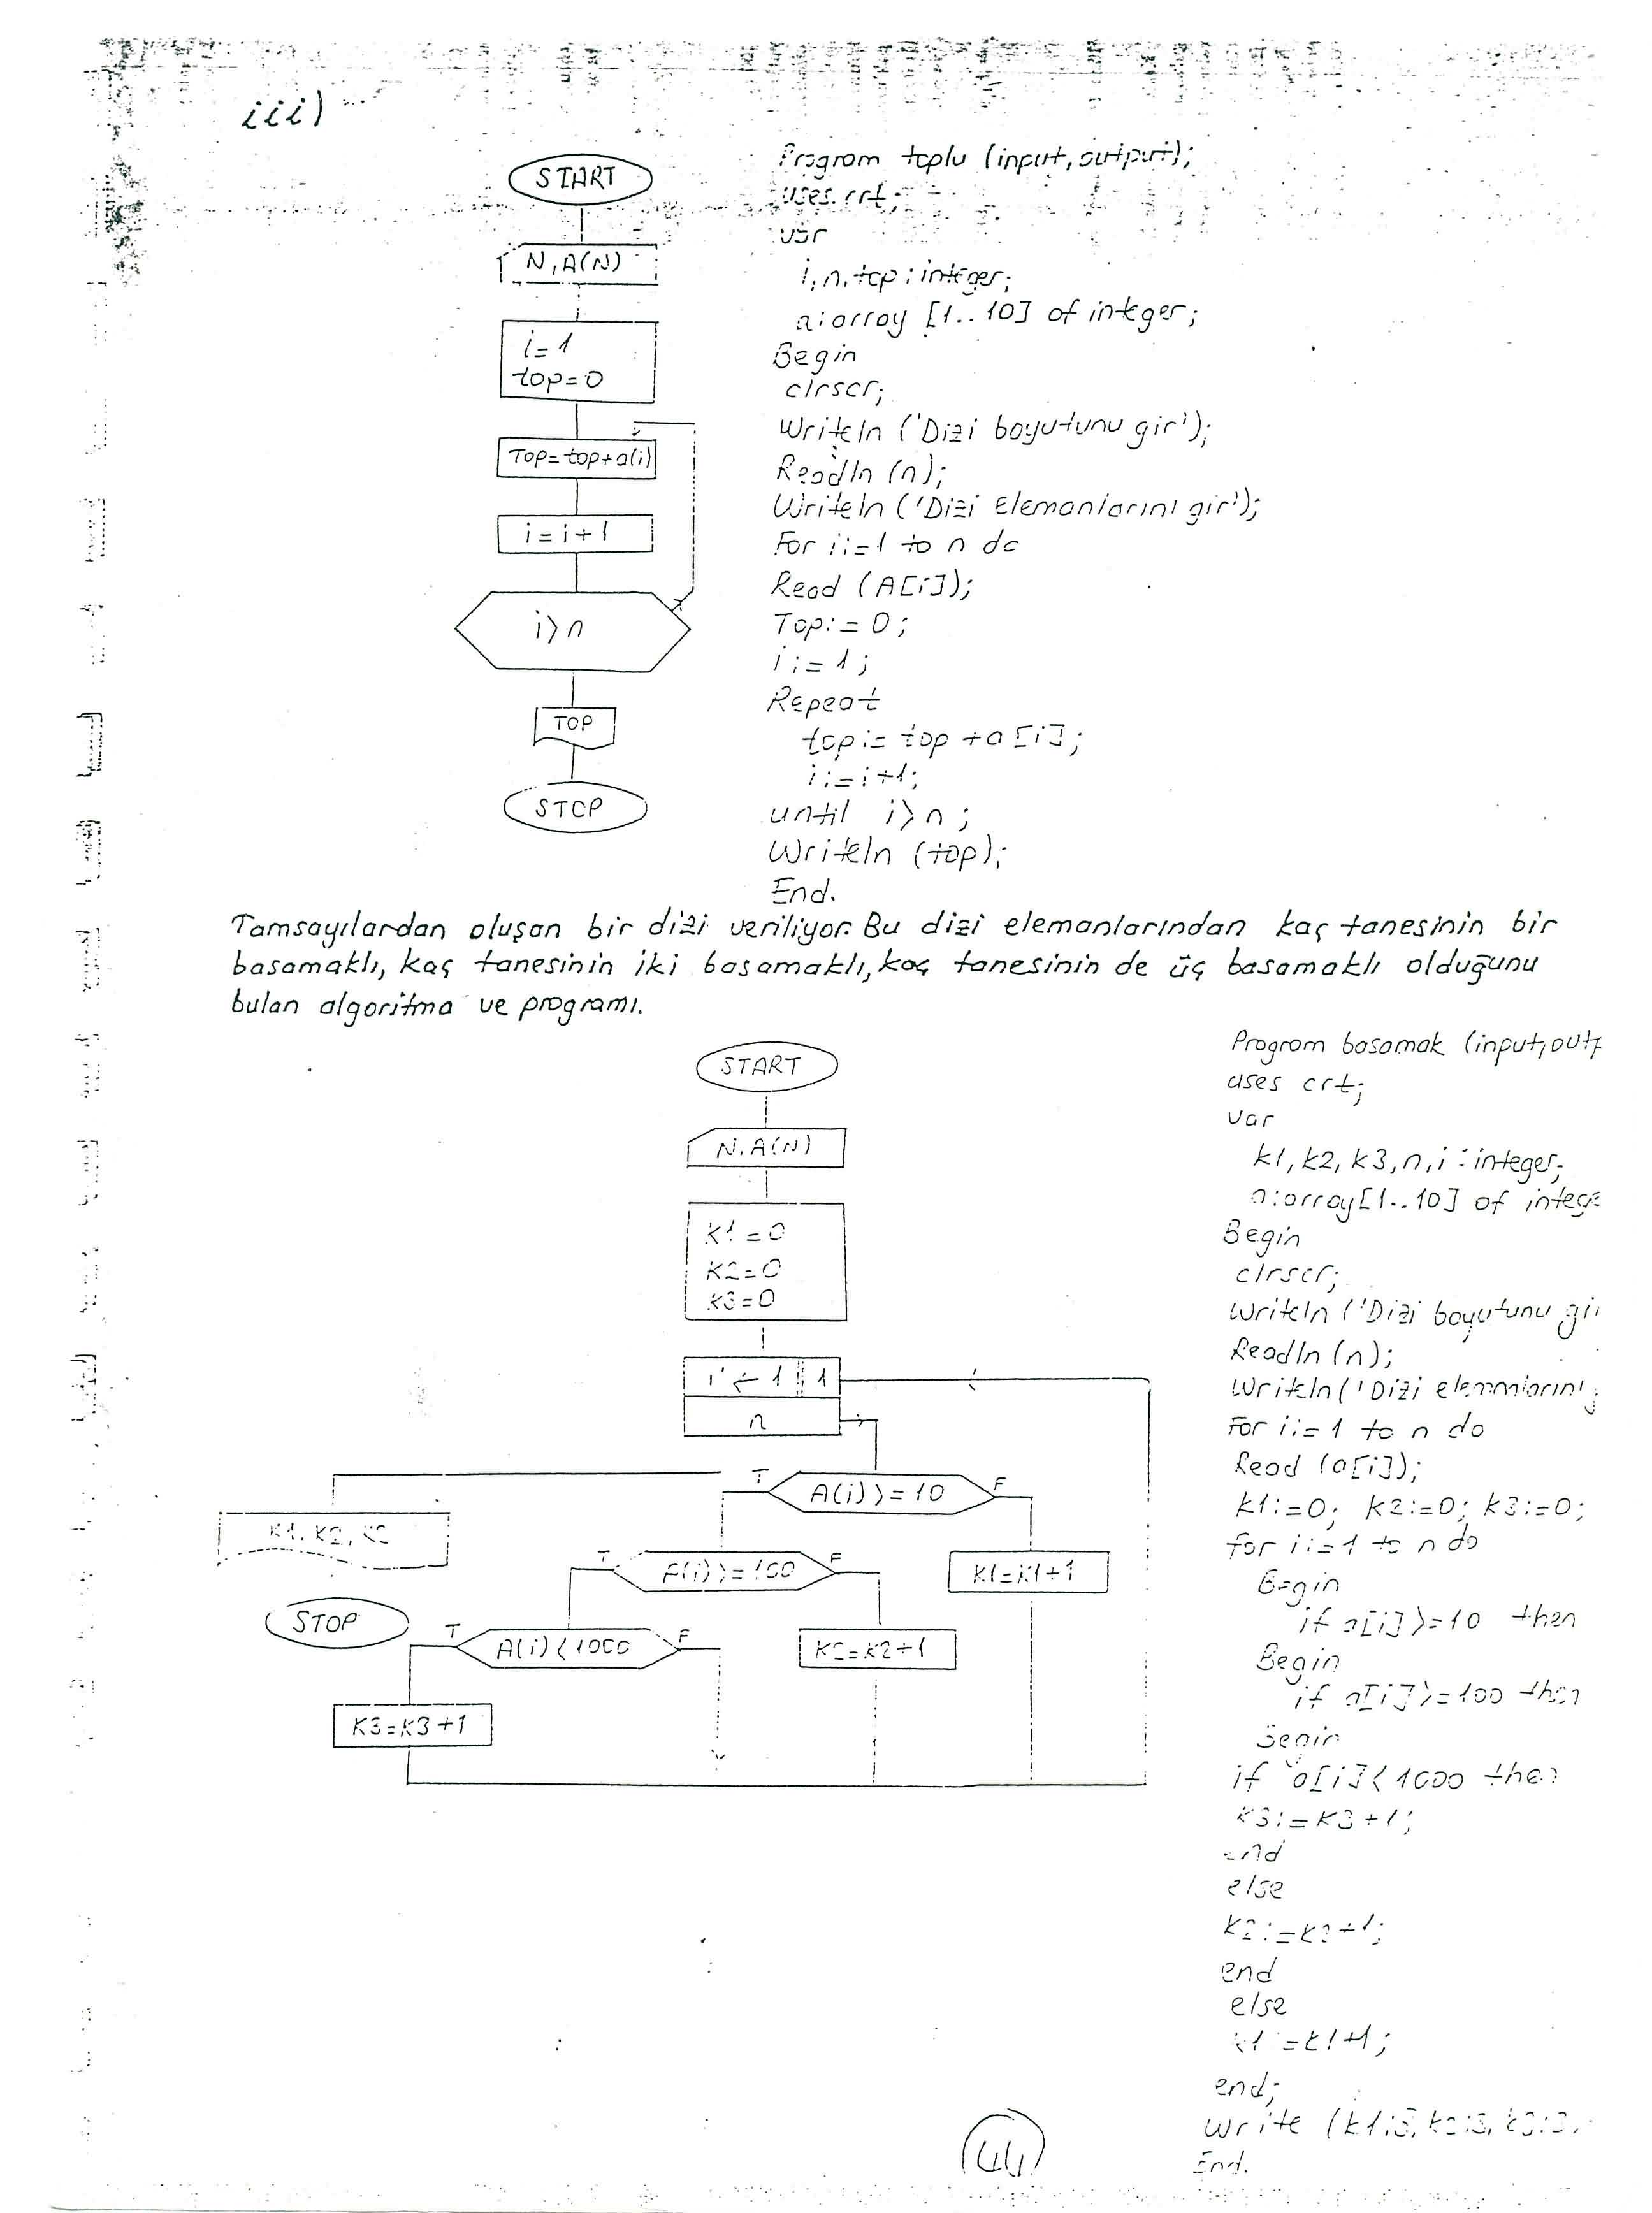 iii)
START
N,A(N)
i=1
top=0
Top=top+a(i)
i=i+1
i>n
TOP
STOP
Program toplu (input, output);
uses crt;
var
i,n,top:integer;
a:array [1..10] of integer;
Begin
clrscr;
Writeln ('Dizi boyutunu gir');
Readln (n);
Writeln ('Dizi Elemanlarını gir');
For i:=1 to n do
Read (A[i]);
Top:=0;
i:=1;
Repeat
top:= top +a[i];
i:=i+1;
until i>n;
Writeln (top);
End.
Tamsayılardan oluşan bir dizi veriliyor. Bu dizi elemanlarından kaç tanesinin bir
basamaklı, kaç tanesinin iki basamaklı, kaç tanesinin de üç basamaklı olduğunu
bulan algoritma ve programı.
START
N,A(N)
K1=0
K2=0
K3=0
i←1 1
n
T A(i)>=10 F
K1,K2,
T A(i)>=100 F
K1=K1+1
STOP
T A(i)<1000 F
K2=K2+1
K3=K3+1
Program basamak (input,outp
uses crt;
var
k1,k2,k3,n,i:integer;
a:array[1..10] of intege
Begin
clrscr;
Writeln ('Dizi boyutunu gi
Readln (n);
Writeln('Dizi elemanlarını
For i:=1 to n do
Read (a[i]);
k1:=0; k2:=0; k3:=0;
for i:=1 to n do
Begin
if a[i]>=10 then
Begin
if a[i]>=100 then
Begin
if a[i]<1000 then
k3:=k3+1;
end
else
k2:=k2+1;
end
else
k1:=k1+1;
end;
Write (k1:3,k2:3,k3:3,
End.
44